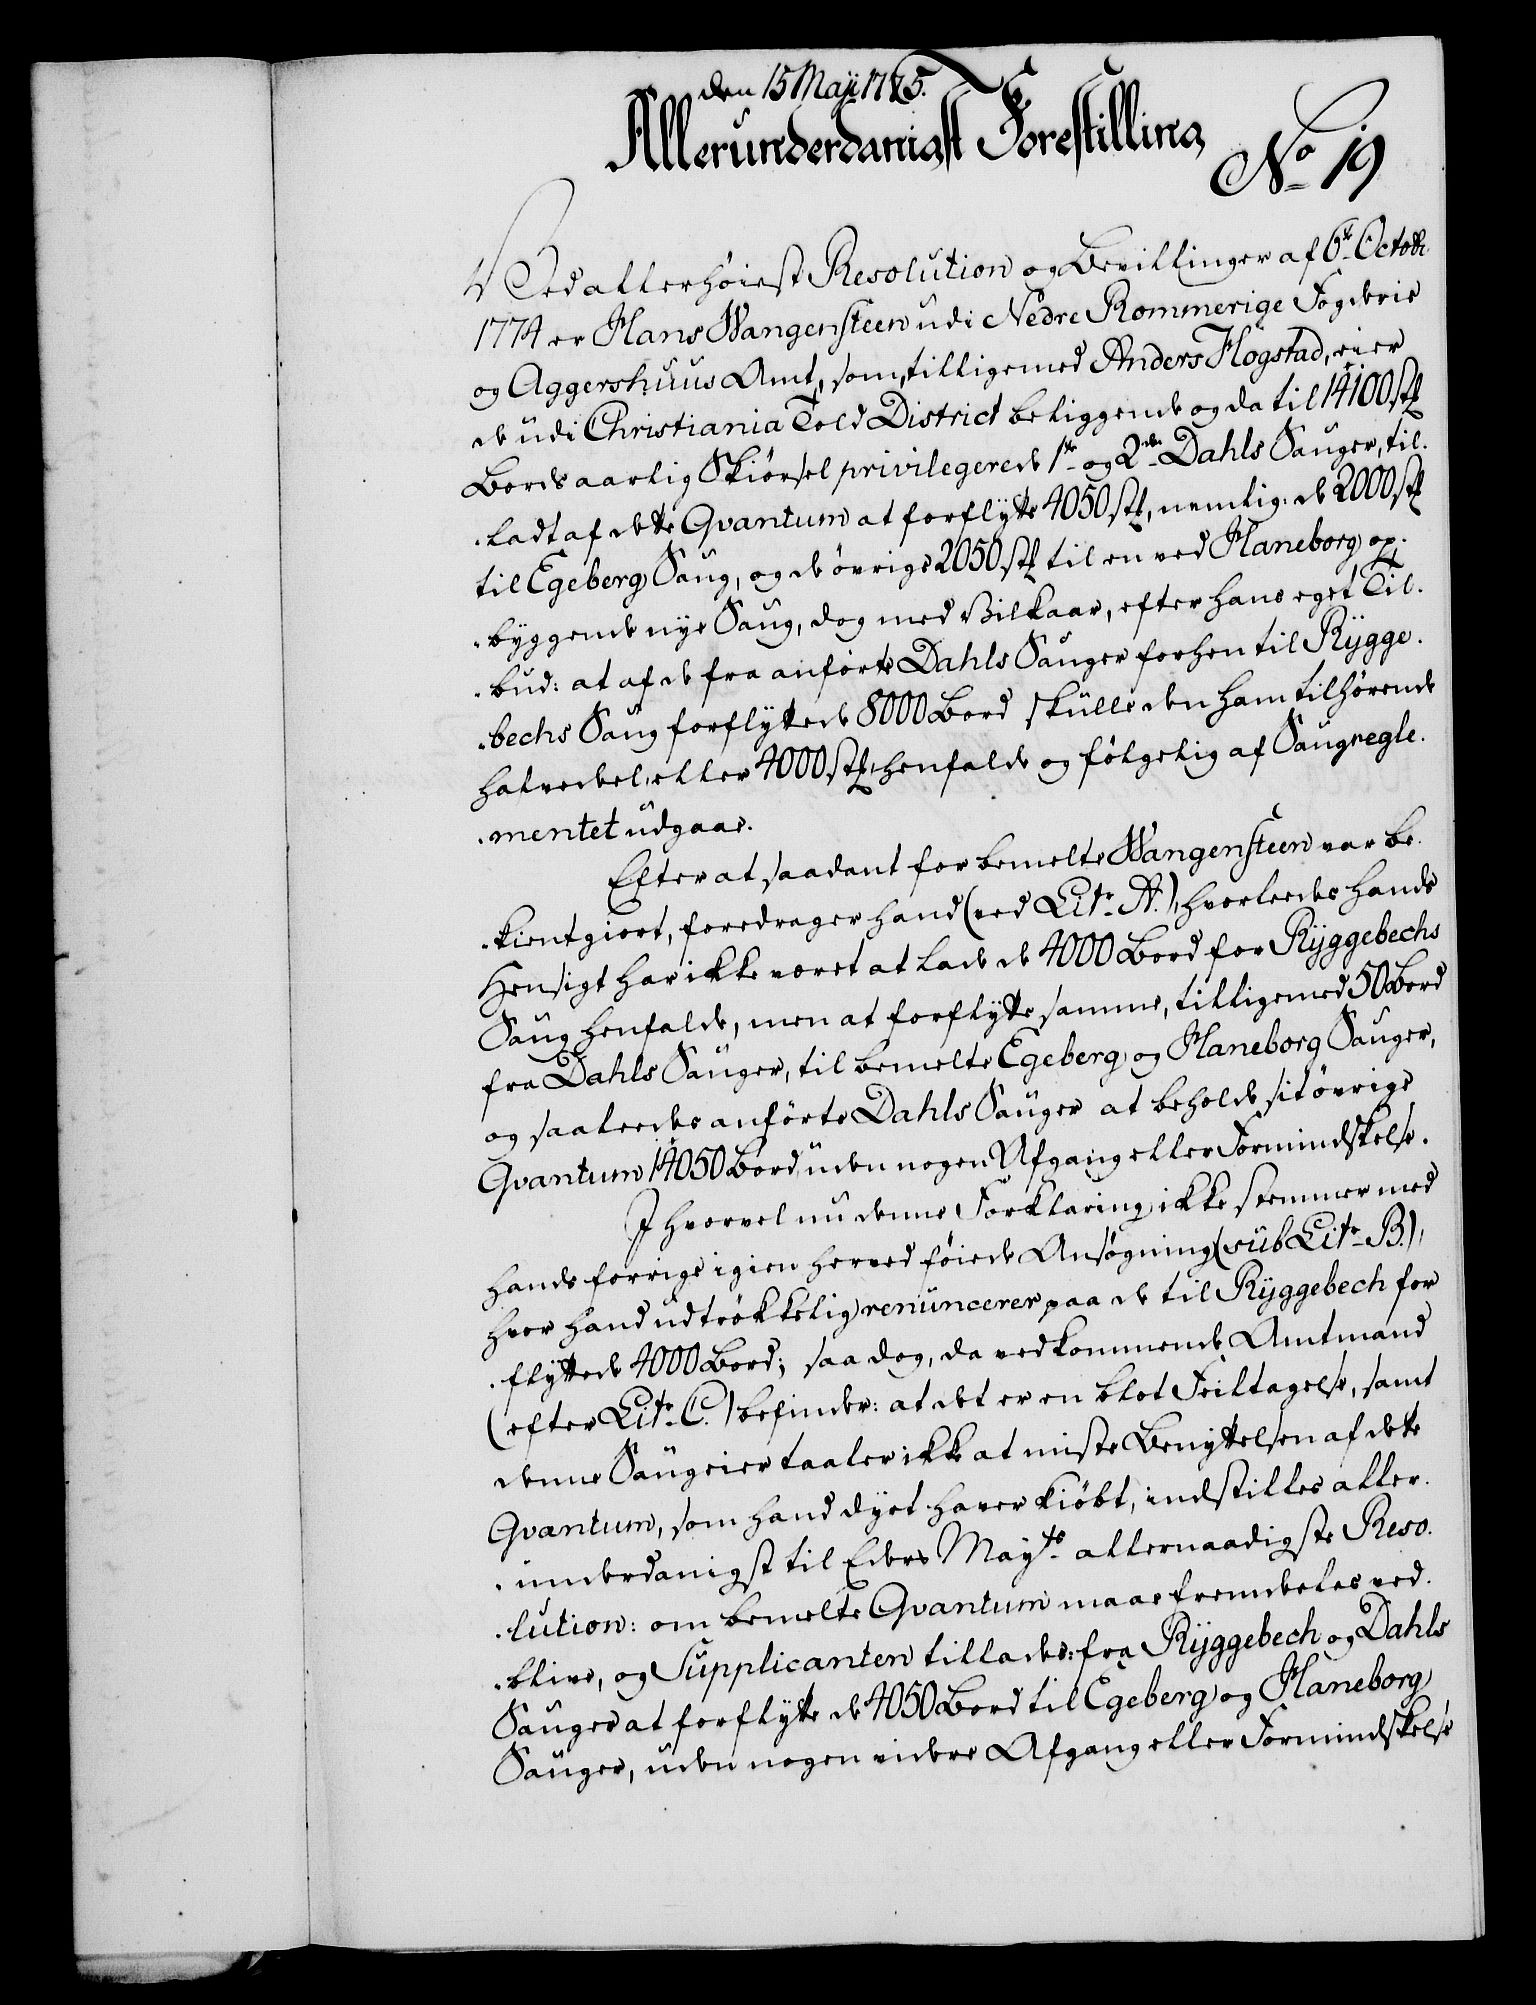 den 15 Maji 1775.
Allerunderdanigst Forestilling
No 19
Ved allerhöiest Resolution og Bevillinger af 6te Octobr
1774 er Hans Wangensteen udi Nedre Rommerige Fogderie
og Aggershuus Amt, som, tilligemed Anders Hogstad, eier
de udi Christiania Told District beliggende og da til 14100 stk
Bords aarlig Skiörsel privilegerede 1te og 2den Dahls Sauger, til.
.ladt af dette Qvantum at forflytte 4050 stk, nemlig: de 2000 stk
til Egeberg Saug, og de övrige 2050 stk til en ved Haneborg op.
.byggende nye Saug, dog med Vilkaar, efter hans eget Til.
.bud: at af de fra anförte Dahls Sauger forhen til Rÿgge.
.bechs Saug forflyttede 8000 Bord skulle den ham tilhörende
halve deel, eller 4000 stk, henfalde og fölgelig af Saugregle.
.mentet udgaae.
Efter at saadant for bemelte Wangensteen var be.
.kientgiort, foredrager hand (ved Litr. A.), hvorleedes hands
Hensigt har ikke været at lade de 4000 Bord for Rÿggebechs
Saug henfalde, men at forflytte samme, tilligemed 50 Bord
fra Dahls Sauger, til bemelte Egeberg og Haneborg Sauger,
og saaleedes anförte Dahls Sauger at beholde sit övrige
Qvantum 14050 Bord, uden nogen Afgang eller Formindskelse.
Ihvorvel nu denne Forklaring ikke stemmer med
hands forrige igien herved föiede Ansögning (sub Litr. B.),
hvor hand udtrökkelig renuncerer paa de til Rÿggebech for
.flyttede 4000 Bord; saa dog, da vedkommende Amtmand
(efter Litr. C.) befinder: at det er en blot Feiltagelse, samt
denne Saugeier taaler ikke at miste Benyttelsen af dette
Qvantum, som hand dyrt haver kiöbt, indstilles aller.
.underdanigst til Eders Mayts allernaadigste Reso.
.lution: om bemelte Qvantum maae fremdeeles ved.
.blive, og Supplicanten tillades: fra Rÿggebech og Dahls
Sauger at forflytte de 4050 Bord til Egeberg og Haneborg
Sauger, uden nogen videre Afgang eller Formindskelse